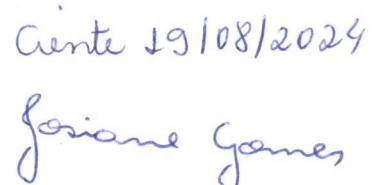 Ciente 19/08/2024
Josiane Gomes